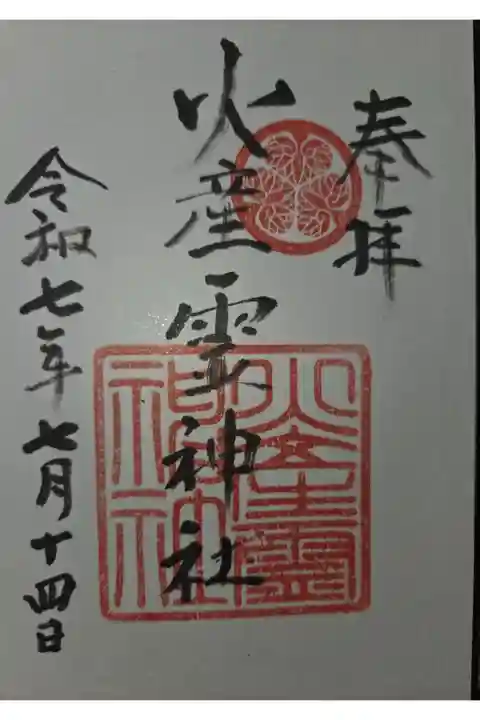 奉拝
火産霊神社
火産霊神社
令和七年七月十四日